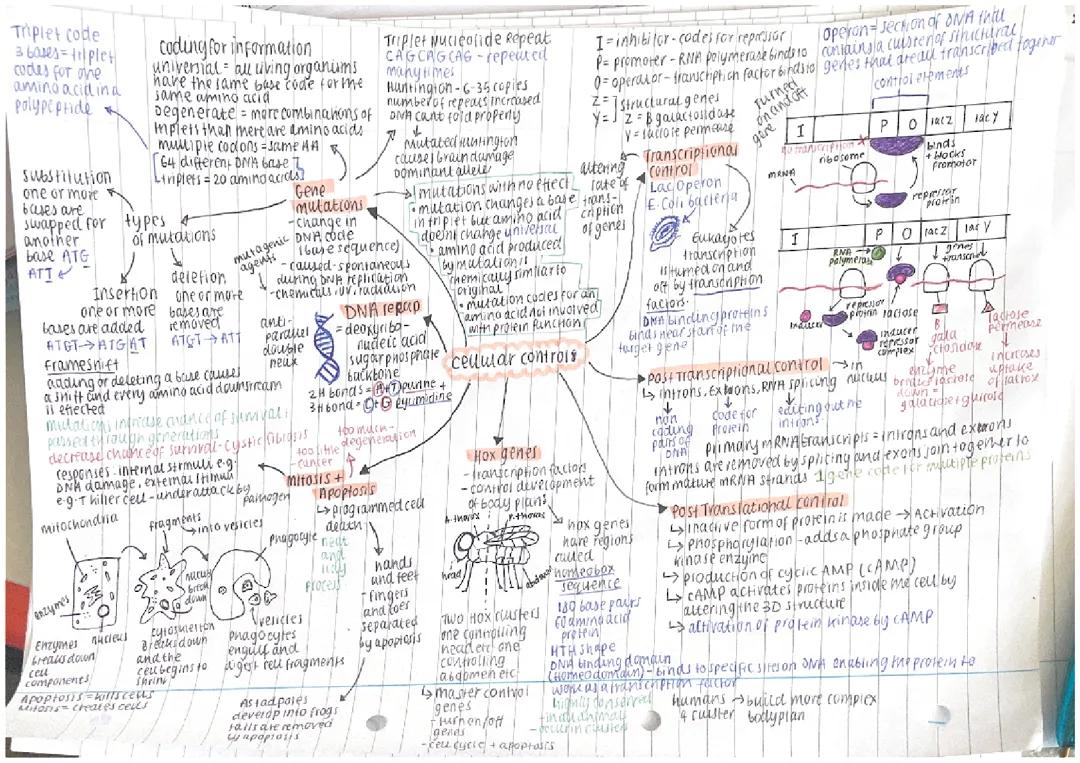 Triplet code
3 bases = triplet
codes for one
amino acid in a
polypeptide
coding for information
universal = all living organisms
have the same base code for the
same amino acid
Degenerate = more combinations of
triplets than there are amino acids
multiple codons = same AA
64 different DNA base
triplets = 20 amino acids
Triplet Nucleotide Repeat
CAGCAGCAG - repeated
many times
Huntington - 6-35 copies
number of repeats increased
DNA cant fold properly
Mutated huntington
causes brain damage
dominant allele
I = inhibitor - codes for repressor
P = promoter - RNA polymerase binds to
O = operator - transcription factor binds to
Z = structural genes
Y = Z = β galactosidase
Y = lactose permease
Operon = section of DNA that
contains a cluster of structural
genes that are all transcribed together
control elements
turned
on and off
gene
I P O lac Z lac Y
no transcription X
ribosome
mRNA
binds
+ blocks
promotor
repressor
protein
substitution
one or more
bases are
swapped for
another
base ATG
ATT
types
of mutations
Insertion
one or more
bases are added
ATGT → ATGAT
deletion
one or more
bases are
removed
ATGT → ATT
Frameshift
adding or deleting a base causes
a shift and every amino acid downstream
is effected
mutations increase chance of survival +
passed through generations
decrease chance of survival - cystic fibrosis
Gene
mutations
- change in
DNA code
(base sequence)
- caused - spontaneous
during DNA replication
- chemicals, uv, radiation
mutagenic
agents
mutations with no effect
• mutation changes a base
in triplet but amino acid
doesnt change universal
• amino acid produced
by mutation is
chemically similar to
original
• mutation codes for an
amino acid not involved
with protein function
DNA recap
= deoxyribo-
nucleic acid
sugar phosphate
backbone
2H bonds = A + T purine +
3H bond = C + G pyrimidine
anti-
parallel
double
helix
cellular controls
altering
rate of
trans-
cription
of genes
Transcriptional
control
Lac Operon
E.Coli bacteria
Eukaryotes
transcription
is turned on and
off by transcription
factors.
DNA binding proteins
binds near start of the
target gene
I P O lac Z lac Y
RNA
polymerase
genes
transcribed
repressor
protein lactose
inducer
inducer
repressor
complex
β
gala
ctosidase
enzyme
breaks lactose
down =
galactose + glucose
lactose
permease
increases
uptake
of lactose
Post Transcriptional control → in
nucleus
↳ introns, Exons, RNA splicing
non
coding
parts of
DNA
code for
protein
editing out the
introns
primary mRNA transcripts = introns and exons
introns are removed by splicing and exons join together to
form mature mRNA strands 1 gene code for multiple proteins
Post Translational control
↳ inactive form of protein is made → Activation
↳ Phosphorylation - adds a phosphate group
kinase enzyme
↳ production of cyclic AMP (cAMP)
↳ cAMP activates proteins inside the cell by
altering the 3D structure
↳ activation of protein kinase by cAMP
Hox genes
- transcription factors
- control development
of body plans
A. thorax
P. thorax
head
abdomen
hox genes
have regions
called
homeobox
sequence
180 base pairs
60 amino acid
protein
HTH shape
DNA binding domain
(homeodomain) - binds to specific sites on DNA enabling the protein to
work as a transcription factor
highly conserved
- in all animals
- occur in clusters
Two Hox clusters
one controlling
head etc, one
controlling
abdomen etc.
↳ master control
genes
- turn on/off
genes
- cell cycle + apoptosis
Humans → build more complex
4 cluster bodyplan
too much -
degeneration
too little
- cancer
Mitosis +
Apoptosis
↳ programmed cell
death
neat
and
tidy
process
hands
and feet
- fingers
and toes
separated
by apoptosis
As tadpoles
develop into frogs
tails are removed
by apoptosis
responses - internal stimuli e.g.
DNA damage, external stimuli
e.g - T killer cell - under attack by
pathogen
mitochondria
fragments
into vesicles
phagocyte
enzymes
nucleus
nucleus
break
down
vesicles
Enzymes
breaks down
cell
components
cytoskeleton
Breaks down
and the
cell begins to
shrink
Phagocytes
engulf and
digest cell fragments
Apoptosis = kills cells
Mitosis = creates cells